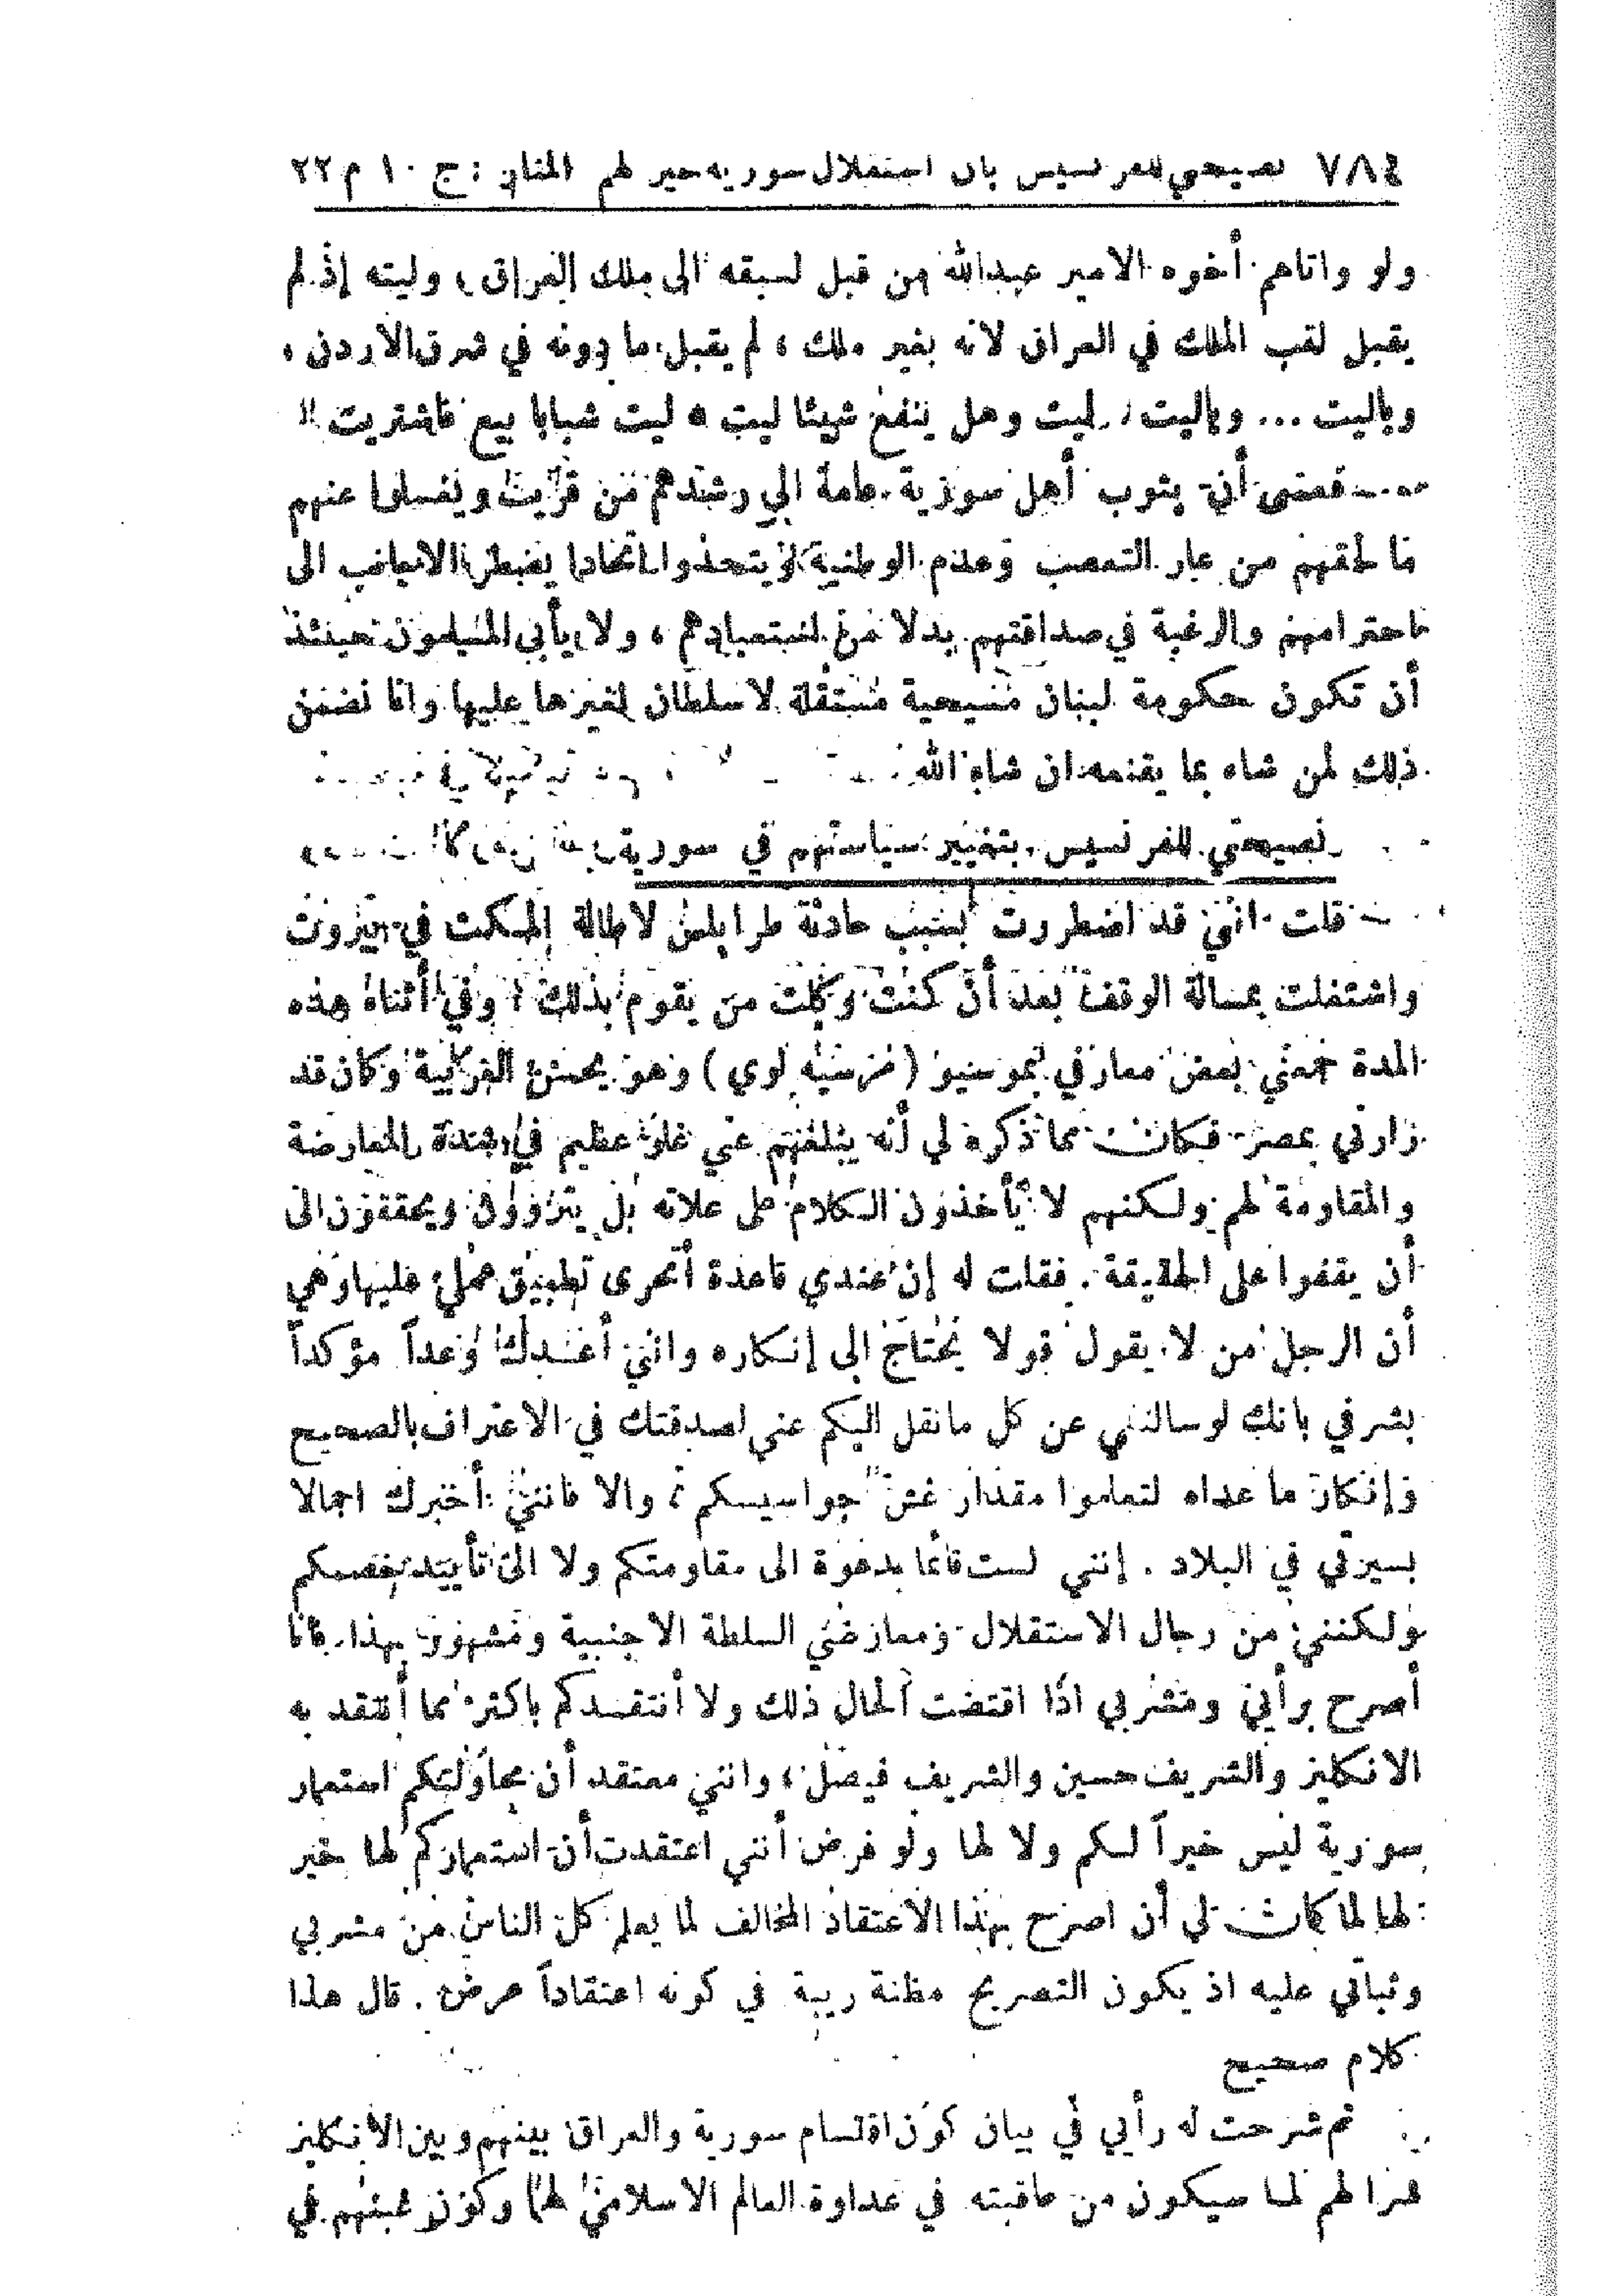 ٧٨٤ نصيحتي للفرنسيس بان استقلال سورية خير لهم المنار : ج ١٠ م ٢٢
ولو واتاهم أخوه الامير عبدالله من قبل لسبقه الى ملك العراق ، وليته إذ لم
يقبل لقب الملك في العراق لانه بغير ملك ، لم يقبل ما دونه في شرق الاردن ،
وياليت ... وياليت ، ليت وهل ينفع شيئا ليت * ليت شبابا بيع فاشتريت !!
فعسى أن يثوب أهل سورية عامة الى رشدهم من قريب ويغسلوا عنهم
ما لحقهم من عار التعصب وعدم الوطنية ويتحدوا اتحادا يضطر الاجانب الى
احترامهم والرغبة في صداقتهم بدلا من استعبادهم ، ولا يأبى المسلمون حينئذ
أن تكون حكومة لبنان مسيحية مستقلة لا سلطان لغيرها عليها وانا نضمن
ذلك لمن شاء بما يقنعه ان شاء الله
نصيحتي للفرنسيس بتغيير سياستهم في سورية
قلت انني قد اضطررت بسبب حادثة طرابلس لاطالة المكث في بيروت
واشتغلت بمسالة الوقف بعد أن كنت وكلت من يقوم بذلك ، وفي أثناء هذه
المدة جمعني بعض معارفي بموسنيو ( مرسيه لوي ) وهو يحسن العربية وكان قد
زارني بمصر فكان مما ذكره لي أنه يبلغهم عني غلو عظيم في شدة المعارضة
والمقاومة لهم ولكنهم لا يأخذون الكلام على علاته بل يتروون ويحققون الى
أن يقفوا على الحقيقة . فقلت له إن عندي قاعدة أتحرى تطبيق عملي عليها وهي
أن الرجل من لا يقول قولا يحتاج الى إنكاره وانني أعدك وعداً مؤكداً
بشرفي بانك لو سالتني عن كل ما نقل اليكم عني لصدقتك في الاعتراف بالصحيح
وإنكار ما عداه لتعلموا مقدار غش جواسيسكم ، والا فانني أخبرك اجمالا
بسيرتي في البلاد . إنني لست قائما بدعوة الى مقاومتكم ولا الى تأييد خصمكم
ولكنني من رجال الاستقلال ومعارضي السلطة الاجنبية ومشهور بهذا فانا
أصرح برأيي ومشربي اذا اقتضت الحال ذلك ولا أنتقدكم باكثر مما أنتقد به
الانكليز والشريف حسين والشريف فيصل ، وانني معتقد أن محاولتكم استعمار
سورية ليس خيراً لكم ولا لها ولو فرض أنني اعتقدت أن استعماركم لها خير
لها لما كان لي أن اصرح بهذا الاعتقاد المخالف لما يعلم كل الناس من مشربي
وثباتي عليه اذ يكون التصريح مظنة ريبة في كونه اعتقاداً عرض . قال هذا
كلام صحيح
ثم شرحت له رأيي في بيان كون اقتسام سورية والعراق بينهم وبين الانكليز
شرا لهم لما سيكون من عاقبته في عداوة العالم الاسلامي لهما وكون في